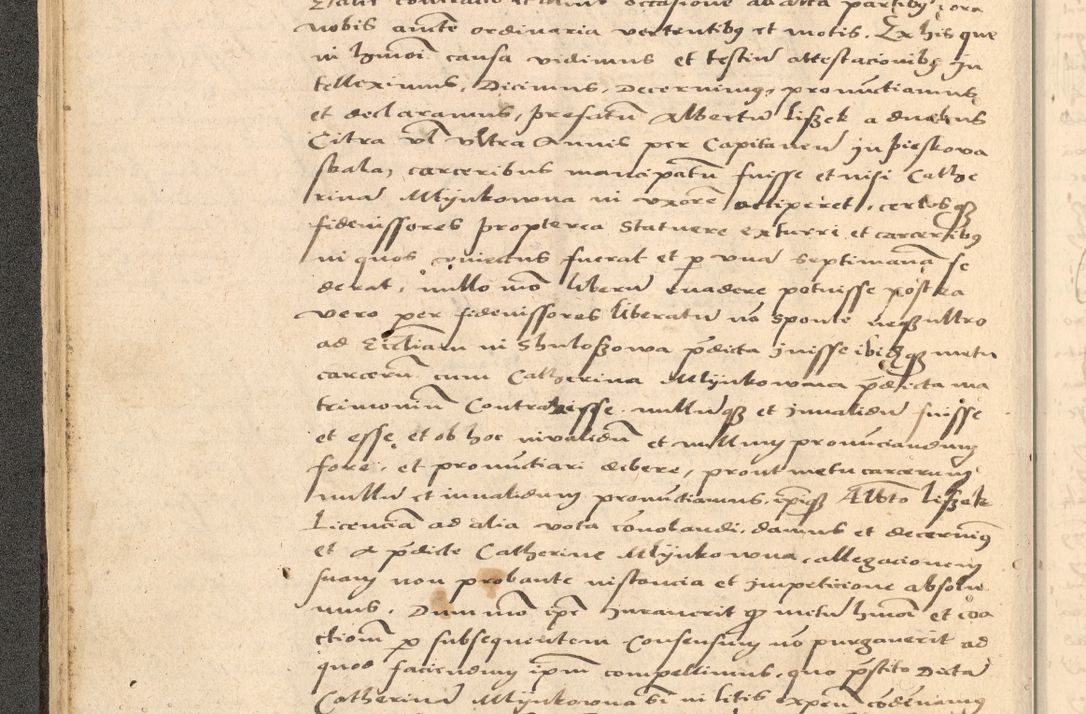 nobis aiuste ordinaria vertentibus et motis. Ex his que
in hmoi causa vidimus et testiu attestacionibus In
telleximus, Dicimus, Decernimus, pronuctiamus
et declaramus, prefatu Albertu Liszek a duobus
Citra vl vltra Annis per Capitaneu in pieskova
skala, carceribus mancipatu fuisse et nisi Cathe
rina Mlijnkowna in vxore acciperet, certosqz
fideiussores propterea Statuere ex turri et carceribus
in quos coniectus fuerat et p vna septimana se
derat, nullo mo liberu euadere potuisse postea
vero per fideiussores liberatu no sponte neqz ultro
ad Eccliam in Shuloszowa pdicta iuisse ibiqz metu
carceru cum Catherina Mlijnkowna pdicta ma
trimoniu Contraxisse nulluqz et inualidu fuisse
et esse, et ob hoc inualidu et nullum pronunciandum
fore, et pronuctiari debere, prout metu carcerum
nullu et inualidum pronuctiamus, ipiqz Albto Liszek
Licencia ad alia vota conolandi, damus et decernimus
et A pdicte Catherine Mlijnkowna, allegacionem
suam non probante instancia et impeticione absolui
mus. Dummo ipe Iurauerit qz metu hmoi et coa
ctiom p subsequentem Consensum no purgauerit ad
quod faciendum ipm compellimus, quo pstito Dicta
Catherina Mlijnkowna ei in litis expen codenamus